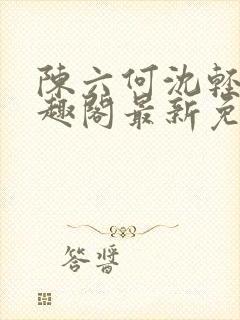 陳六何沈輕
趣閣最新免
答醬